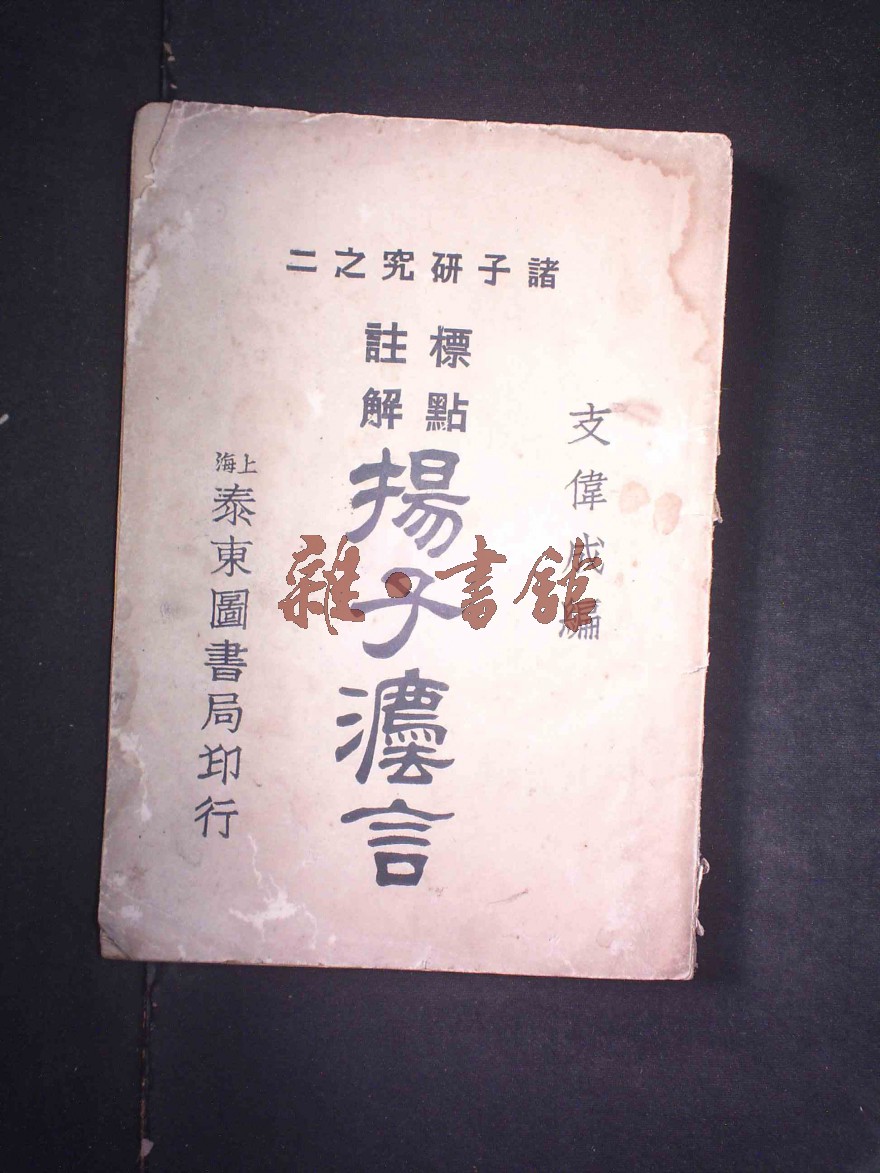 諸子研究之二
支偉成編
標點
註解
揚子灋言
上海
泰東圖書局印行
雜·書館